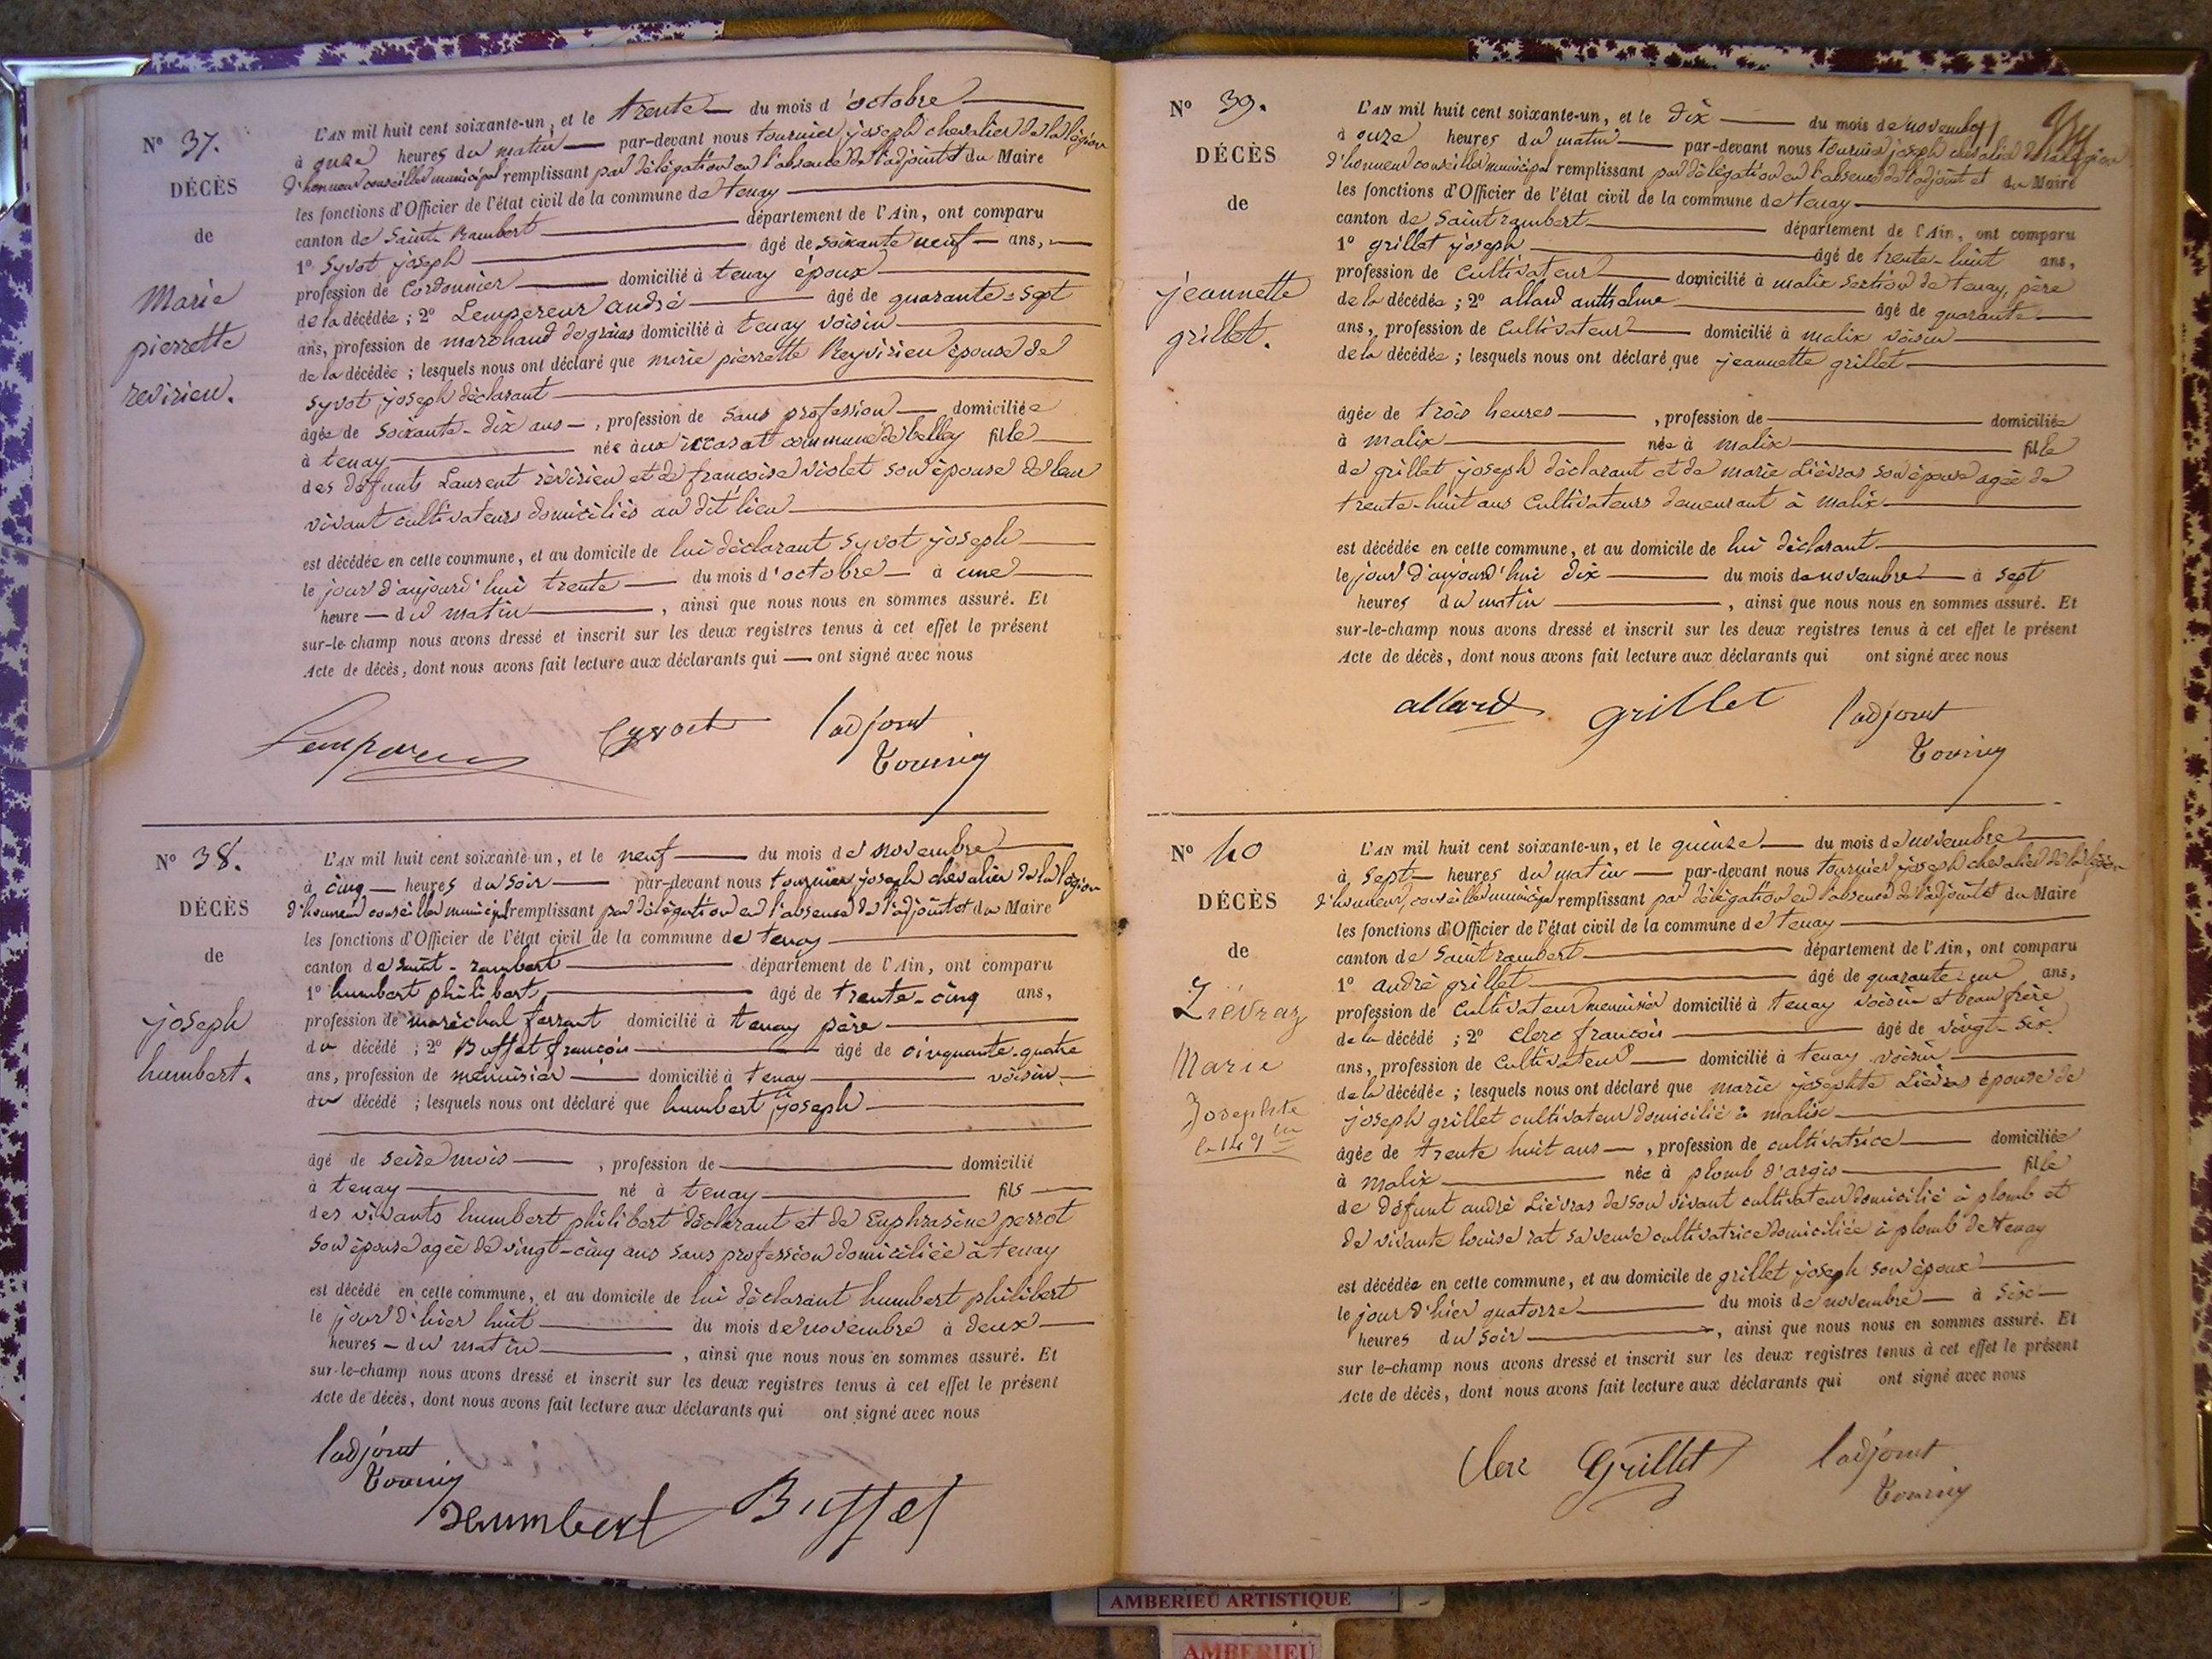 N° 37.
DÉCÈS
de
Marie
pierrette
revirieu.
L'AN mil huit cent soixante-un, et le trente du mois d'octobre
à onze heures du matin par-devant nous tournier joseph chevalier de la légion
d'honneur conseiller municipal remplissant par délégation en l'absence de l'adjoint et du Maire
les fonctions d'Officier de l'état civil de la commune de tenay
canton de Saint-Rambert département de l'Ain, ont comparu
1° Syvot joseph âgé de soixante neuf ans,
profession de Cordonnier domicilié à tenay époux
de la décédée ; 2° Lempereur andré âgé de quarante-sept
ans, profession de marchand de grains domicilié à tenay voisin
de la décédée ; lesquels nous ont déclaré que marie pierrette Reyvirieu épouse de
Syvot joseph déclarant
âgée de soixante-dix ans, profession de sans profession domiciliée
à tenay née aux commune de belley fille
des défunts Laurent révirieu et de françoise violet son épouse de leur
vivant cultivateurs domiciliés au dit lieu
est décédée en cette commune, et au domicile de lui déclarant Syvot joseph
le jour d'aujourd'hui trente du mois d'octobre à une
heure du matin, ainsi que nous nous en sommes assuré. Et
sur-le-champ nous avons dressé et inscrit sur les deux registres tenus à cet effet le présent
Acte de décès, dont nous avons fait lecture aux déclarants qui ont signé avec nous
l'adjoint
N° 38.
DÉCÈS
de
joseph
humbert.
L'AN mil huit cent soixante-un, et le neuf du mois de novembre
à cinq heures du soir par-devant nous tournier joseph chevalier de la légion
d'honneur conseiller municipal remplissant par délégation en l'absence de l'adjoint et du Maire
les fonctions d'Officier de l'état civil de la commune de tenay
canton de saint-rambert département de l'Ain, ont comparu
1° humbert philibert âgé de trente-cinq ans,
profession de maréchal ferrant domicilié à tenay père
du décédé ; 2° Buffet françois âgé de cinquante-quatre
ans, profession de menuisier domicilié à tenay voisin
du décédé ; lesquels nous ont déclaré que humbert joseph
âgé de seize mois, profession de domicilié
à tenay né à tenay fils
des vivants humbert philibert déclarant et de Euphrasine perrot
son épouse agée de vingt-cinq ans sans profession domiciliée à tenay
est décédé en cette commune, et au domicile de lui déclarant humbert philibert
le jour d'hier huit du mois de novembre à deux
heures du matin, ainsi que nous nous en sommes assuré. Et
sur-le-champ nous avons dressé et inscrit sur les deux registres tenus à cet effet le présent
Acte de décès, dont nous avons fait lecture aux déclarants qui ont signé avec nous
l'adjoint
humbert Buffet
N° 39.
DÉCÈS
de
jeannette
grillet.
L'AN mil huit cent soixante-un, et le dix du mois de novembre
à onze heures du matin par-devant nous tournier joseph chevalier de la légion
d'honneur conseiller municipal remplissant par délégation en l'absence de l'adjoint et du Maire
les fonctions d'Officier de l'état civil de la commune de tenay
canton de Saint rambert département de l'Ain, ont comparu
1° grillet joseph âgé de trente-huit ans,
profession de Cultivateur domicilié à malix section de tenay, père
de la décédée ; 2° allard anthelme âgé de quarante
ans, profession de Cultivateur domicilié à malix voisin
de la décédée ; lesquels nous ont déclaré que jeannette grillet
âgée de trois heures, profession de domiciliée
à malix née à malix fille
de grillet joseph déclarant et de marie Liévras son épouse agée de
trente-huit ans Cultivateurs demeurant à malix
est décédée en cette commune, et au domicile de lui déclarant
le jour d'aujourd'hui dix du mois de novembre à sept
heures du matin, ainsi que nous nous en sommes assuré. Et
sur-le-champ nous avons dressé et inscrit sur les deux registres tenus à cet effet le présent
Acte de décès, dont nous avons fait lecture aux déclarants qui ont signé avec nous
allard grillet l'adjoint
N° 40
DÉCÈS
de
Liévraz
Marie
Josephte
L'AN mil huit cent soixante-un, et le quinze du mois de novembre
à sept heures du matin par-devant nous tournier joseph chevalier de la légion
d'honneur, conseiller municipal remplissant par délégation en l'absence de l'adjoint et du Maire
les fonctions d'Officier de l'état civil de la commune de tenay
canton de Saint rambert département de l'Ain, ont comparu
1° andré grillet âgé de quarante-un ans,
profession de Cultivateur menuisier domicilié à tenay voisin et beau frère
de la décédé ; 2° Clerc françois âgé de vingt-six
ans, profession de Cultivateur domicilié à tenay voisin
de la décédée ; lesquels nous ont déclaré que marie josephte Liévras épouse de
joseph grillet cultivateur domicilié à malix
âgée de trente huit ans, profession de cultivatrice domiciliée
à malix née à plomb d'argis fille
de défunt andré Liévras de son vivant cultivateur domicilié à plomb et
de vivante louise rat sa veuve cultivatrice domiciliée à plomb de tenay
est décédée en cette commune, et au domicile de grillet joseph son époux
le jour d'hier quatorze du mois de novembre à six
heures du soir, ainsi que nous nous en sommes assuré. Et
sur le-champ nous avons dressé et inscrit sur les deux registres tenus à cet effet le présent
Acte de décès, dont nous avons fait lecture aux déclarants qui ont signé avec nous
Clerc Grillet l'adjoint
AMBERIEU ARTISTIQUE
AMBERIEU